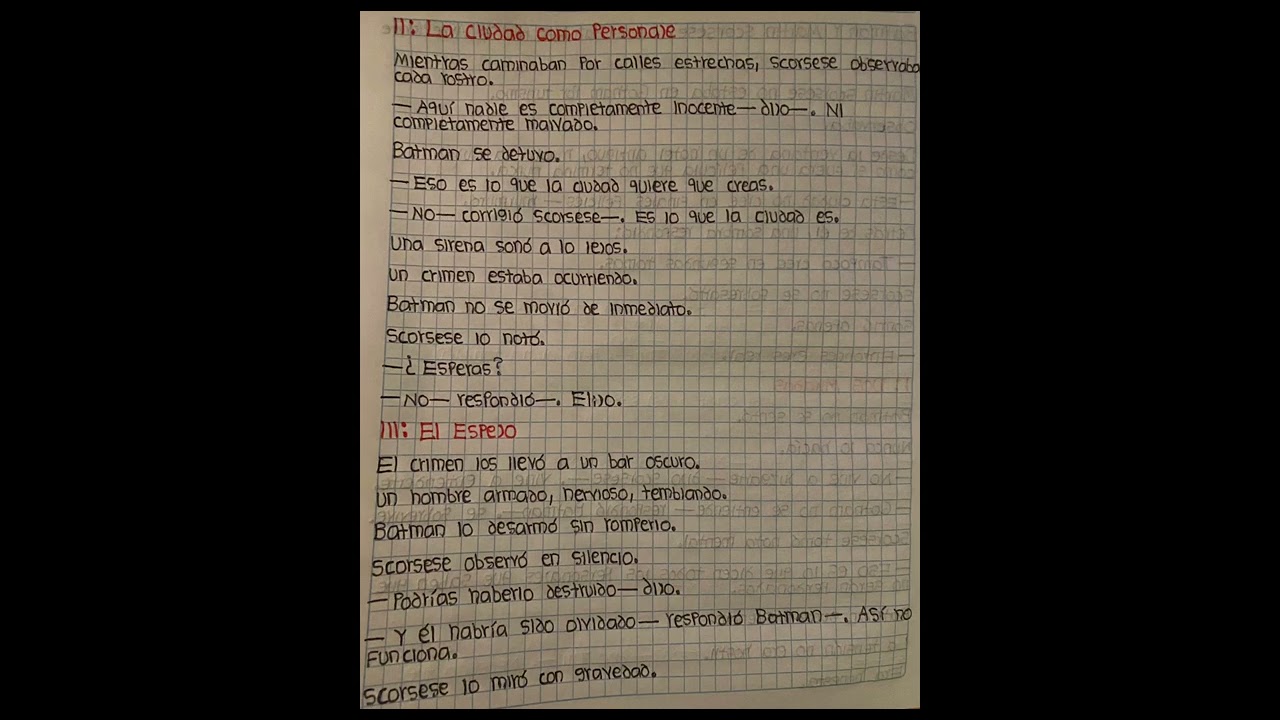 II: La ciudad como Personaje
Mientras caminaban Por calles estrechas, scorsese observaba
cada rostro.
—Aquí nadie es completamente inocente—dijo—. Ni
completamente malvado.
Batman se detuvo.
—Eso es lo que la ciudad quiere que creas.
—No— corrigió scorsese—. Es lo que la ciudad es.
una sirena sonó a lo lejos.
un crimen estaba ocurriendo.
Batman no se movió de inmediato.
Scorsese lo notó.
—¿Esperas?
—No— respondió—. Elijo.
III: El Espejo
El crimen los llevó a un bar oscuro.
un hombre armado, nervioso, temblando.
Batman lo desarmó sin romperlo.
scorsese observó en silencio.
—Podrías haberlo destruido—dijo.
—Y él habría sido olvidado—respondió Batman—. Así no
Funciona.
scorsese lo miró con gravedad.